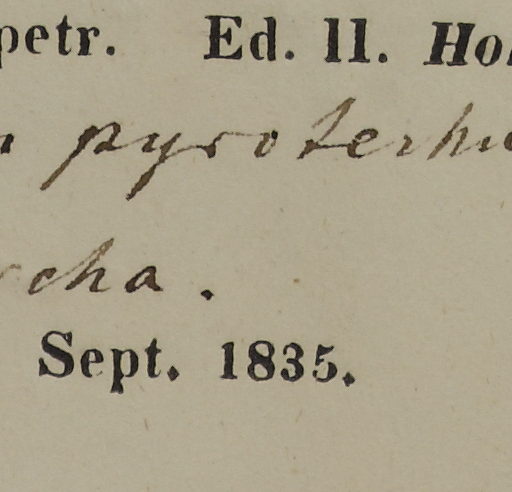 petr. Ed. II. Ho
pyroterhu
cha.
Sept. 1835.